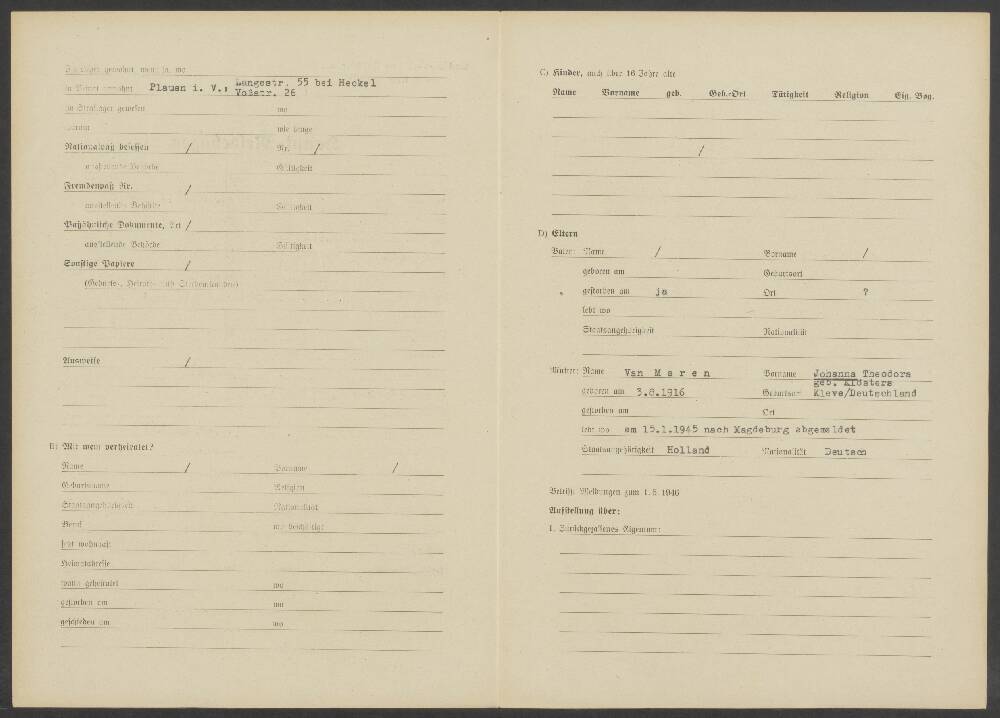 Langestr. 55 bei Heckel
Plauen i. V., Voßstr. 26
in Straflager gewesen wo
warum wie lange
Nationalpaß besessen / Nr. /
ausstellende Behörde Gültigkeit
Fremdenpaß Nr. /
ausstellende Behörde Gültigkeit
Paßähnliche Dokumente, Art /
ausstellende Behörde Gültigkeit
Sonstige Papiere /
(Geburts-, Heirats- und Sterbeurkunden)
Ausweise /
B) Mit wem verheiratet?
Name / Vorname /
Geburtsname Religion
Staatsangehörigkeit Nationalität
Beruf wo beschäftigt
jetzt wohnhaft
Heimatadresse
wann geheiratet wo
gestorben am wo
geschieden am wo
C) Kinder, auch über 16 Jahre alte
Name Vorname geb. Geb.-Ort Tätigkeit Religion Eig. Vog.
/
D) Eltern
Vater: Name / Vorname /
geboren am Geburtsort
gestorben am ja Ort ?
lebt wo
Staatsangehörigkeit Nationalität
Mutter: Name Van Meren Vorname Johanna Theodora
geb. Klösters
geboren am 3.8.1916 Geburtsort Kleve/Deutschland
gestorben am Ort
lebt wo am 15.1.1945 nach Magdeburg abgemeldet
Staatsangehörigkeit Holland Nationalität Deutsch
Betrifft: Meldungen zum 1. 8. 1946
Aufstellung über:
1. Zurückgelassenes Eigentum: